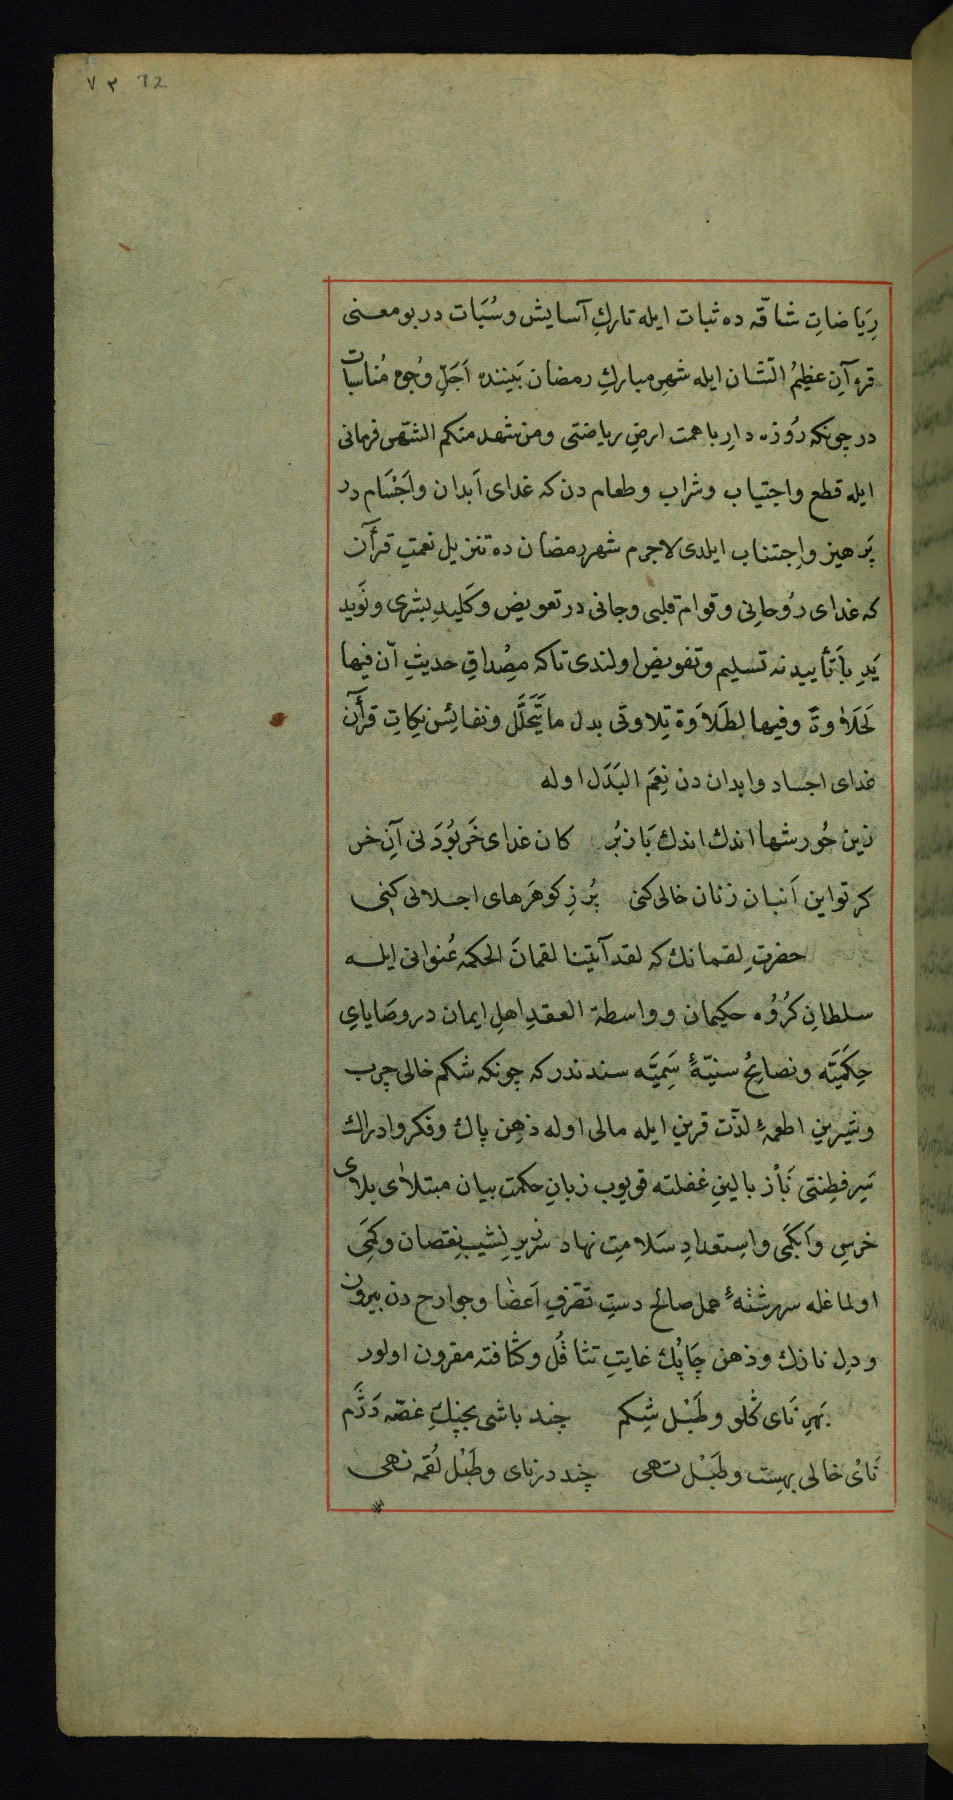 ٧٣ 72
رِيَاضاتِ شاقّه ده ثبات ايله تاركِ آسايش وسُبَات در بو معنى
قرءآنِ عظيمُ الشّان ايله شهرِ مباركِ رمضان بَيننده اَجَلِّ وُجوهِ مُناسبات
در چونكه رُوزه دارِ باهمت ارضِ رياضتى ومن شهد منكم الشّهر فرمانى
ايله قطع واجتياب وشراب وطعام دن كه غداى اَبدان واَجْسَام در
پَرهيز واِجتناب ايلدى لاجرم شهر رمضان ده تنزيل نعمتِ قرأٓن
كه غداى رُوحانِى وقوام قلبى وجانى در تعويض وكَليدِ بشرى ونَويد
يَدِ بَا تأييدنه تسليم وتفويض اولندى تاكه مِصْداقِ حديثِ اِنّ فيها
لَحَلَاوةً وفيها لطَلَاوَة تِلاوتى بدل ما يَتَحَلَّل ونفائسِ نِكاتِ قرأٓن
غداى اجساد وابدان دن نِعمَ البَدَل اوله
زين خُورشها اندك اندك بَاز بُر كان غداى خَر بُوَد نى آنِ خر
كر تو اين اَنبان زنان خالى كنى پُر زِ كوهَرهاى اجلالى كنِى
حضرتِ لقمانك كه لقد آتينا لقمانَ الحكمه عُنوانى ايله
سلطانِ كرُوُه حكيمان وواسطة العقدِ اهلِ ايمان در وصَاياىِ
حِكَمَيّه ونصايحُ سنيّهٔ سَمِيَّه سندندر كه چونكه شكم خالى چرب
وشيرين اطعمهٔ لذّت قرين ايله مالى اوله ذهنِ پاك وفكر وادراك
سَرِ فطِنتى نَأز بالينِ غفلته قويوب زبانِ حكمت بيان مبتلاى بلاى
خرسِ واَبكمَى واِستعدادِ سَلامت نهاد سرزيرِ نِشيبِ نِقصان وكمَى
اولماغله سررشتهٔ عمل صالح دستِ تصّرفِ اَعضا وجوارح دن بيرون
ودِل نازك وذهن چاپُك غايتِ تثاقُل وكثافته مقرون اولور
بَهرِ نَاى كُلو وطَبْل شِكم چند باشى بچنكِ غصّه دَژَم
نَاىْ خالى بهست وطَبْل تهى چند در ناى وطَبْل لُقمه نهى